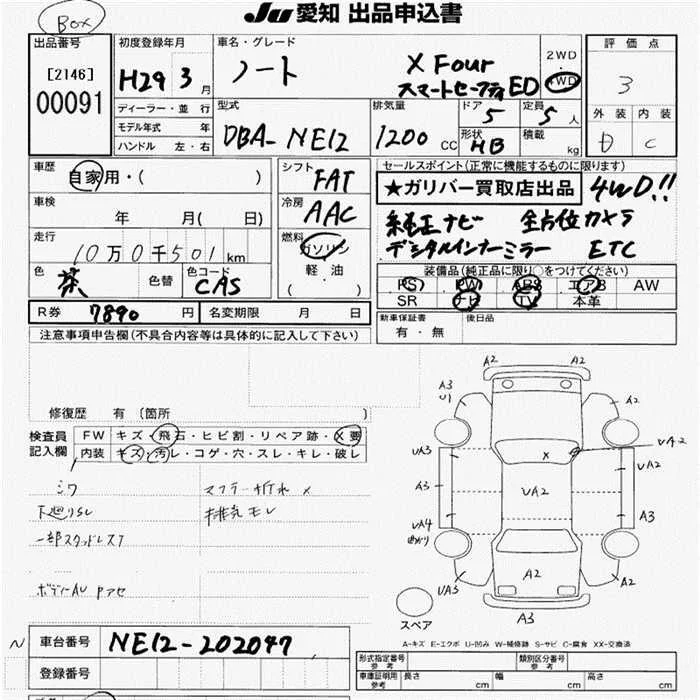 JU 愛知 出品申込書
BOX
出品番号
[2146]
00091
初度登録年月
H29 3 月
ディーラー・並行
モデル年式 年
ハンドル 左・右
車名・グレード
ノート
X Four
スマートセーフティED
2WD
4WD
評価点
3
外装 内装
D C
型式
DBA-NE12
排気量
1200 CC
ドア
5
定員
5 人
形状
HB
積載
kg
車歴
自家用・( )
シフト
FAT
セールスポイント(正常に機能するものに限ります)
★ガリバー買取店出品
4WD!!
純正ナビ 全方位カメラ
デジタルインナーミラー ETC
車検
年 月( 日)
冷房
AAC
走行
10万0千501km
燃料
ガソリン
軽油
( ・ )
色
茶
色替
色コード
CAS
装備品(純正品に限り○をつけてください)
PS PW ABS エアB AW
SR ナビ TV 本革
R券 7890 円
名変期限 月 日
新車保証書
有・無
後日品
注意事項申告欄(不具合内容等は具体的に記入して下さい)
修復歴 有 〔箇所 〕
検査員
記入欄
FW キズ・飛石・ヒビ割・リペア跡・X要
内装 キズ・汚レ・コゲ・穴・スレ・キレ・破レ
シワ
マフラー折れ X
下廻りSL
排気モレ
一部スタッドレス7
ボディーAU Pアセ
A2 A2
A3
U1
A2
UA3
UA2
X
A3
UA2
UA2
A3
UA4
曲がり
UA3
A2
A2
A3
スペア
A-キズ E-エクボ U-凹み W-補修跡 S-サビ C-腐食 XX-交換済
N
車台番号
NE12-202047
登録番号
形式指定番号
参考
類別区分番号
参考
車庫証明用
参考
長さ cm
幅 cm
高さ cm